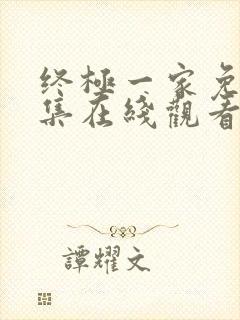 終極一家免
集在綫觀看
譚耀文